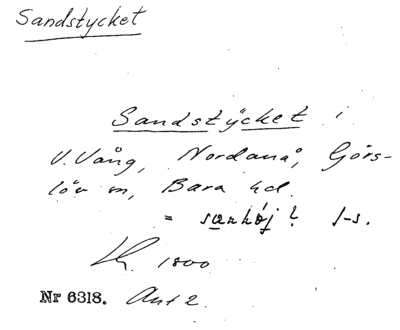 Sandstycket
Sandstycket i
V. Vång, Nordanå, Görs-
löv sn, Bara hd.
= sanhöj? s-s.
Kr. 1800
Nr 6318. Ant 2.